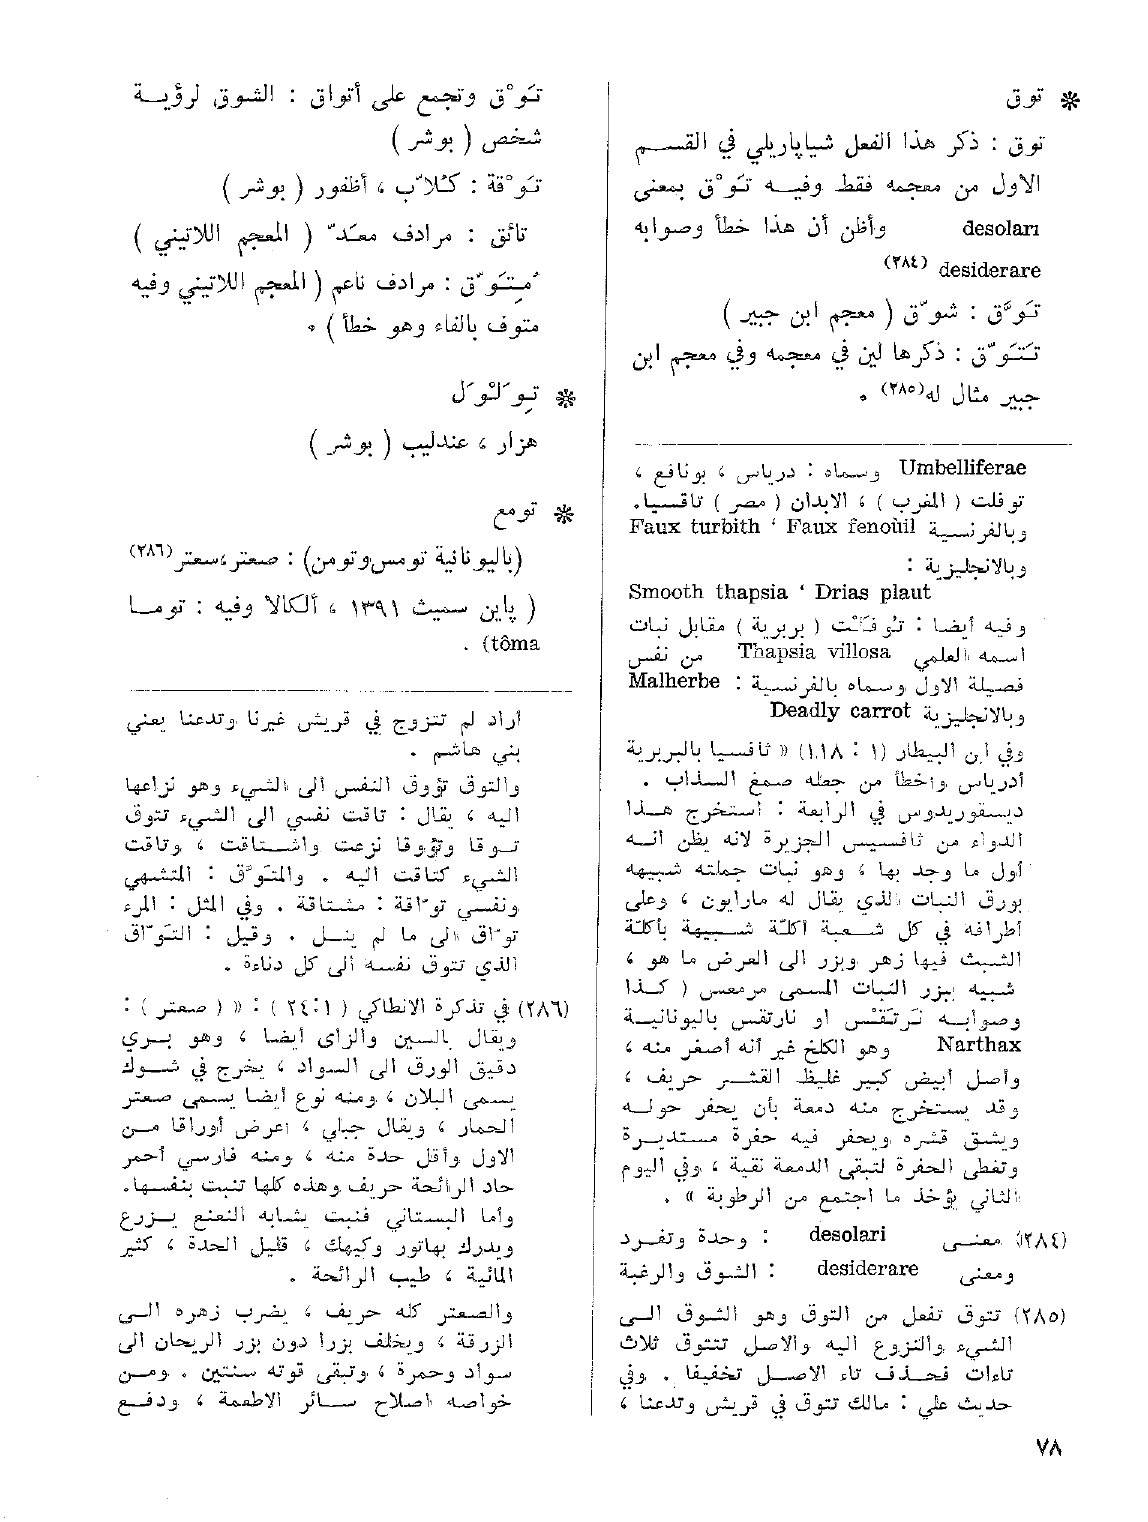 ❊ توق
توق : ذكر هذا الفعل شياپاريلي في القسم
الاول من معجمه فقط وفيه تَوْق بمعنى
desolari وأظن أن هذا خطأ وصوابه
desiderare (٢٨٤)
تَوَّق : شوّق ( معجم ابن جبير )
تَتَوّق : ذكرها لين في معجمه وفي معجم ابن
جبير مثال له(٢٨٥) .
Umbelliferae وسماه : درياس ، بونافع ،
توفلت ( المغرب ) ، الابدان ( مصر ) تافسيا.
وبالفرنسية Faux turbith ‘ Faux fenoüil
وبالانجليزية :
Smooth thapsia ‘ Drias plaut
وفيه أيضا : تُوفَلْت ( بربرية ) مقابل نبات
اسمه العلمي Thapsia villosa من نفس
فصيلة الاول وسماه بالفرنسية : Malherbe
وبالانجليزية Deadly carrot
وفي ابن البيطار (١ : ١١٨) « ثافسيا بالبربرية
أدرياس وأخطأ من جعله صمغ السذاب .
ديسقوريدوس في الرابعة : استخرج هذا
الدواء من ثافسيس الجزيرة لانه يظن انه
أول ما وجد بها ، وهو نبات جملته شبيهه
بورق النبات الذي يقال له مارايون ، وعلى
أطرافه في كل شعبة أكلّة شبيهة بأكلّة
الشبث فيها زهر وبزر الى العرض ما هو ،
شبيه ببزر النبات المسمى مرمعس ( كذا
وصوابه نَرتَقْس او نارتقس باليونانية
Narthax وهو الكلخ غير أنه أصغر منه ،
وأصل أبيض كبير غليظ القشر حريف ،
وقد يستخرج منه دمعة بأن يحفر حوله
ويشق قشره ويحفر فيه حفرة مستديرة
وتغطى الحفرة لتبقى الدمعة نقية ، وفي اليوم
الثاني يؤخذ ما اجتمع من الرطوبة » .
(٢٨٤) معنى desolari : وحدة وتفرد
ومعنى desiderare : الشوق والرغبة
(٢٨٥) تتوق تفعل من التوق وهو الشوق الى
الشيء والنزوع اليه والاصل تتتوق ثلاث
تاءات فحذف تاء الاصل تخفيفا . وفي
حديث علي : مالك تتوق في قريش وتدعنا ،
تَوْق وتجمع على أتواق : الشوق لرؤية
شخص ( بوشر )
تَوْقة : كُلاّب ، أظفور ( بوشر )
تائق : مرادف معدّ ( المعجم اللاتيني )
مُتَوّق : مرادف ناعم ( المعجم اللاتيني وفيه
متوف بالفاء وهو خطأ ) .
❊ تِوَلْوَل
هزار ، عندليب ( بوشر )
❊ تومع
(باليونانية تومس وتومن) : صعتر ،سعتر(٢٨٦)
( پاين سميث ١٣٩١ ، ألكالا وفيه : توما
tôma) .
أراد لم تتزوج في قريش غيرنا وتدعنا يعني
بني هاشم .
والتوق تؤوق النفس الى الشيء وهو نزاعها
اليه ، يقال : تاقت نفسي الى الشيء تتوق
توقا وتؤوقا نزعت واشتاقت ، وتاقت
الشيء كتاقت اليه . والمتَوَّق : المتشهي
ونفس توّاقة : مشتاقة . وفي المثل : المرء
توّاق الى ما لم ينل . وقيل : التَوّاق
الذي تتوق نفسه الى كل دناءة .
(٢٨٦) في تذكرة الانطاكي (١ : ٢٤ ) : « ( صعتر ) :
ويقال بالسين والزاي أيضا ، وهو بري
دقيق الورق الى السواد ، يخرج في شوك
يسمى البلان ، ومنه نوع أيضا يسمى صعتر
الحمار ، ويقال جبلي ، اعرض أوراقا من
الاول وأقل حدة منه ، ومنه فارسي أحمر
حاد الرائحة حريف وهذه كلها تنبت بنفسها.
وأما البستاني فنبت يشابه النعنع يزرع
ويدرك بهاتور وكيهك ، قليل الحدة ، كثير
المائية ، طيب الرائحة .
والصعتر كله حريف ، يضرب زهره الى
الزرقة ، ويخلف بزرا دون بزر الريحان الى
سواد وحمرة ، وتبقى قوته سنتين . ومن
خواصه اصلاح سائر الاطعمة ، ودفع
٧٨